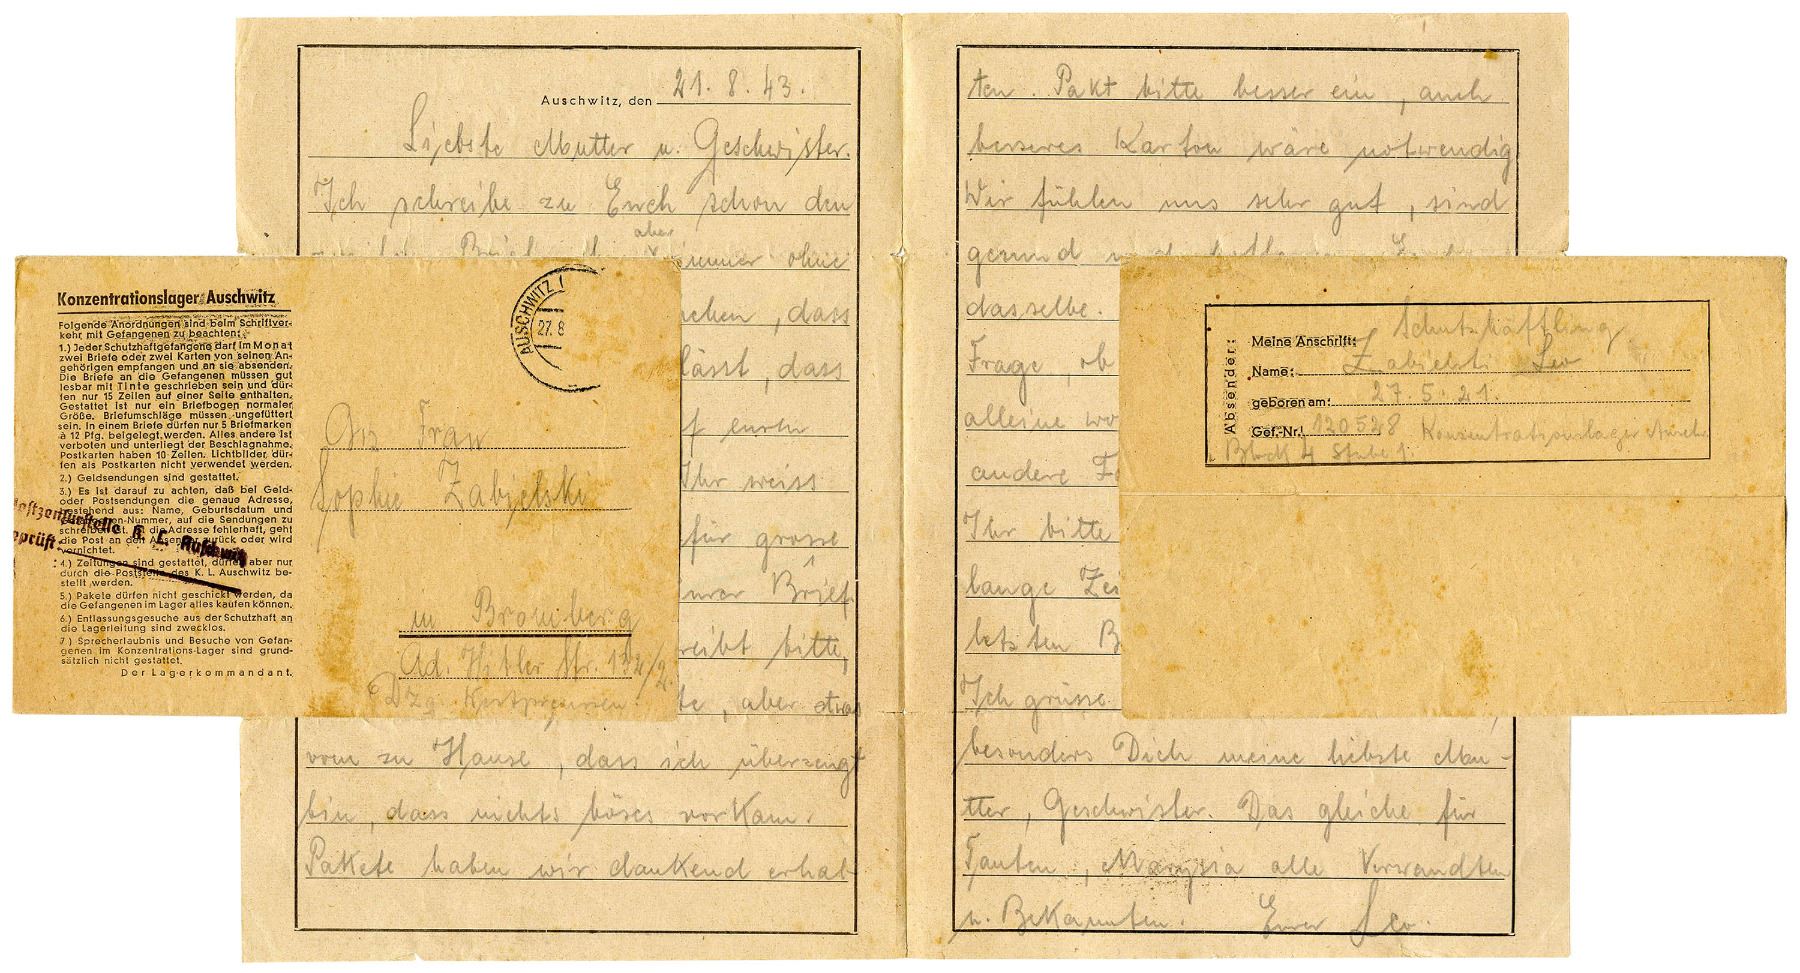 Auschwitz, den 21. 8. 43.
Liebste Mutter u. Geschwister.
Ich schreibe zu Euch schon den
aber
immer ohne
chen, dass
lässt, dass
f eurer
Ihr weiss
für grosse
urer Brief
reibt bitte,
te, aber etwas
vom zu Hause, dass ich überzeugt
bin, dass nichts böses vorkam.
Pakete haben wir dankend erhal-
ten. Pakt bitte besser ein, auch
besseres Karton wäre notwendig
Wir fühlen uns sehr gut, sind
gesund
dasselbe.
Frage, ob
alleine wo
andere
Ihr bitte
lange Zei
letzten B
Ich grüsse
besonders Dich meine liebste Mu-
tter, Geschwister. Das gleiche für
Tanten, Marysia alle Verwandten
u. Bekannten. Euer Leo.
Konzentrationslager Auschwitz
Folgende Anordnungen sind beim Schriftver-
kehr mit Gefangenen zu beachten:
1.) Jeder Schutzhaftgefangene darf im Monat
zwei Briefe oder zwei Karten von seinen An-
gehörigen empfangen und an sie absenden.
Die Briefe an die Gefangenen müssen gut
lesbar mit Tinte geschrieben sein und dür-
fen nur 15 Zeilen auf einer Seite enthalten.
Gestattet ist nur ein Briefbogen normaler
Größe. Briefumschläge müssen ungefüttert
sein. In einem Briefe dürfen nur 5 Briefmarken
à 12 Pfg. beigelegt werden. Alles andere ist
verboten und unterliegt der Beschlagnahme.
Postkarten haben 10 Zeilen. Lichtbilder dür-
fen als Postkarten nicht verwendet werden.
2.) Geldsendungen sind gestattet.
3.) Es ist darauf zu achten, daß bei Geld-
oder Postsendungen die genaue Adresse,
bestehend aus: Name, Geburtsdatum und
Gefangenen-Nummer, auf die Sendungen zu
schreiben ist. Ist die Adresse fehlerhaft, geht
die Post an den Absender zurück oder wird
vernichtet.
4.) Zeitungen sind gestattet, dürfen aber nur
durch die Poststelle des K. L. Auschwitz be-
stellt werden.
5.) Pakete dürfen nicht geschickt werden, da
die Gefangenen im Lager alles kaufen können.
6.) Entlassungsgesuche aus der Schutzhaft an
die Lagerleitung sind zwecklos.
7.) Sprecherlaubnis und Besuche von Gefan-
genen im Konzentrations-Lager sind grund-
sätzlich nicht gestattet.
Der Lagerkommandant.
Postzensurstelle K. L. Auschwitz
geprüft
AUSCHWITZ 1
27. 8
Frau
Sophie Zabielski
in Bromberg
Ad. Hitler Str. 132/2
Absender:
Schutzhäftling
Meine Anschrift:
Name: Zabielski Leo
geboren am: 27. 5. 21.
Gef.-Nr. 120528 Konzentrationslager Ausch.
Block 4 Stube 1.